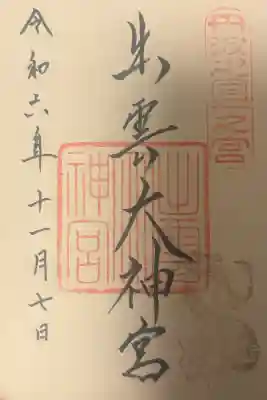 丹波國一之宮
出雲大神宮
出雲
神宮
令和六年十一月七日